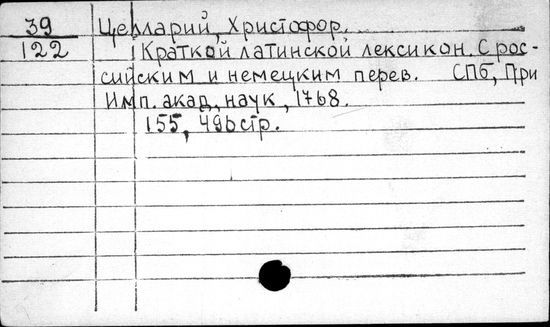 39 Целларий, Христофор.
122 Краткой латинской лексикон. С рос-
сийским и немецким перев. СПб, При
Имп. акад. наук, 1768.
155, 496 стр.